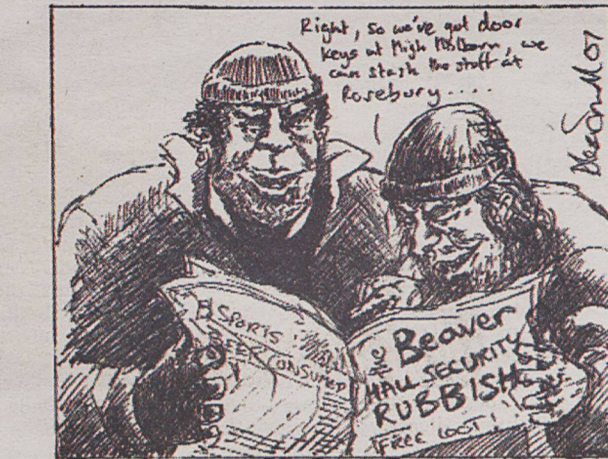 Right, so we've got door
keys at High Holborn, we
can stash the stuff at
Rosebury....
07
SPORTS
BEER CONSUMED
The Beaver
HALL SECURITY
RUBBISH
FREE LOOT!